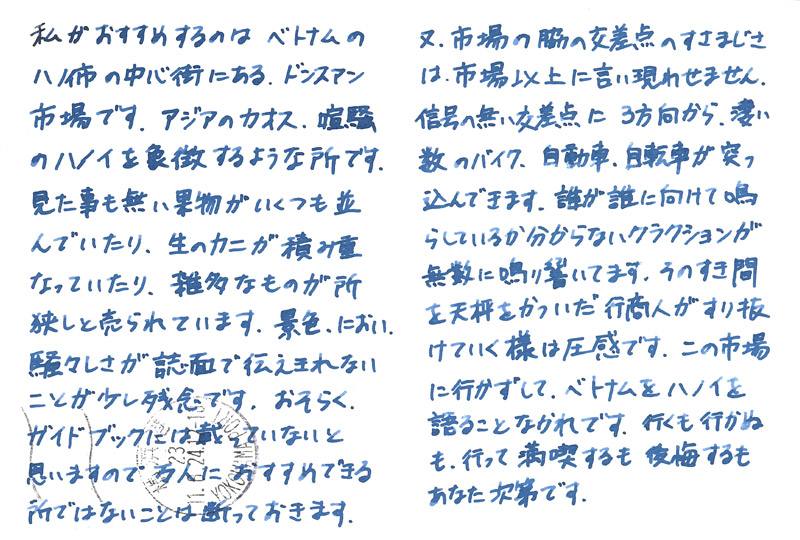 私がおすすめするのは ベトナムの
ハノイ市の中心街にある、ドンスアン
市場です。アジアのカオス、喧騒
のハノイを象徴するような所です。
見た事も無い果物がいくつも並
んでいたり、生のカニが積み重
なっていたり、雑多なものが所
狭しと売られています。景色、におい、
騒々しさが誌面で伝えきれない
ことが少し残念です。おそらく、
ガイドブックには載っていないと
思いますので、万人におすすめできる
所ではないことは断っておきます。
又、市場の脇の交差点のすさまじさ
は、市場以上に言い現わせません。
信号の無い交差点に 3方向から、凄い
数のバイク、自動車、自転車が突っ
込んできます。誰が誰に向けて鳴
らしているか分からないクラクションが
無数に鳴り響いてます。そのすき間
を天秤をかついだ行商人がすり抜
けていく様は圧感です。この市場
に行かずして、ベトナムをハノイを
語ることなかれです。行くも行かぬ
も、行って満喫するも後悔するも
あなた次第です。
YOKOHAMA